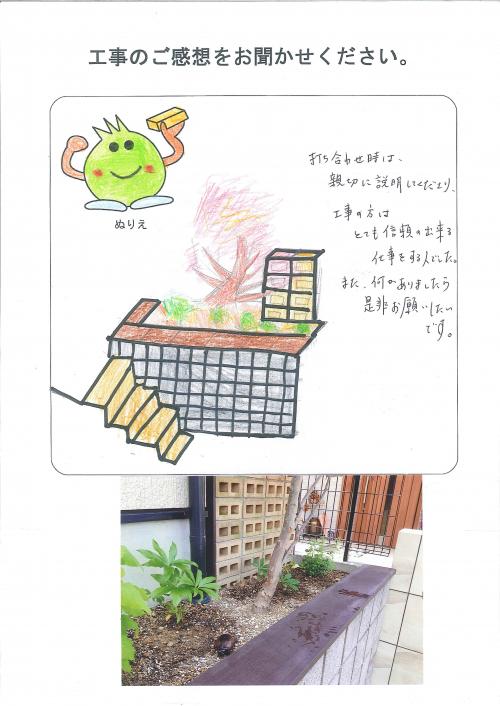 工事のご感想をお聞かせください。
ぬりえ
打ち合わせ時は、
親切に説明してくださり、
工事の方は
とても信頼の出来る
仕事をする人でした。
また、何かありましたら
是非お願いしたい
です。